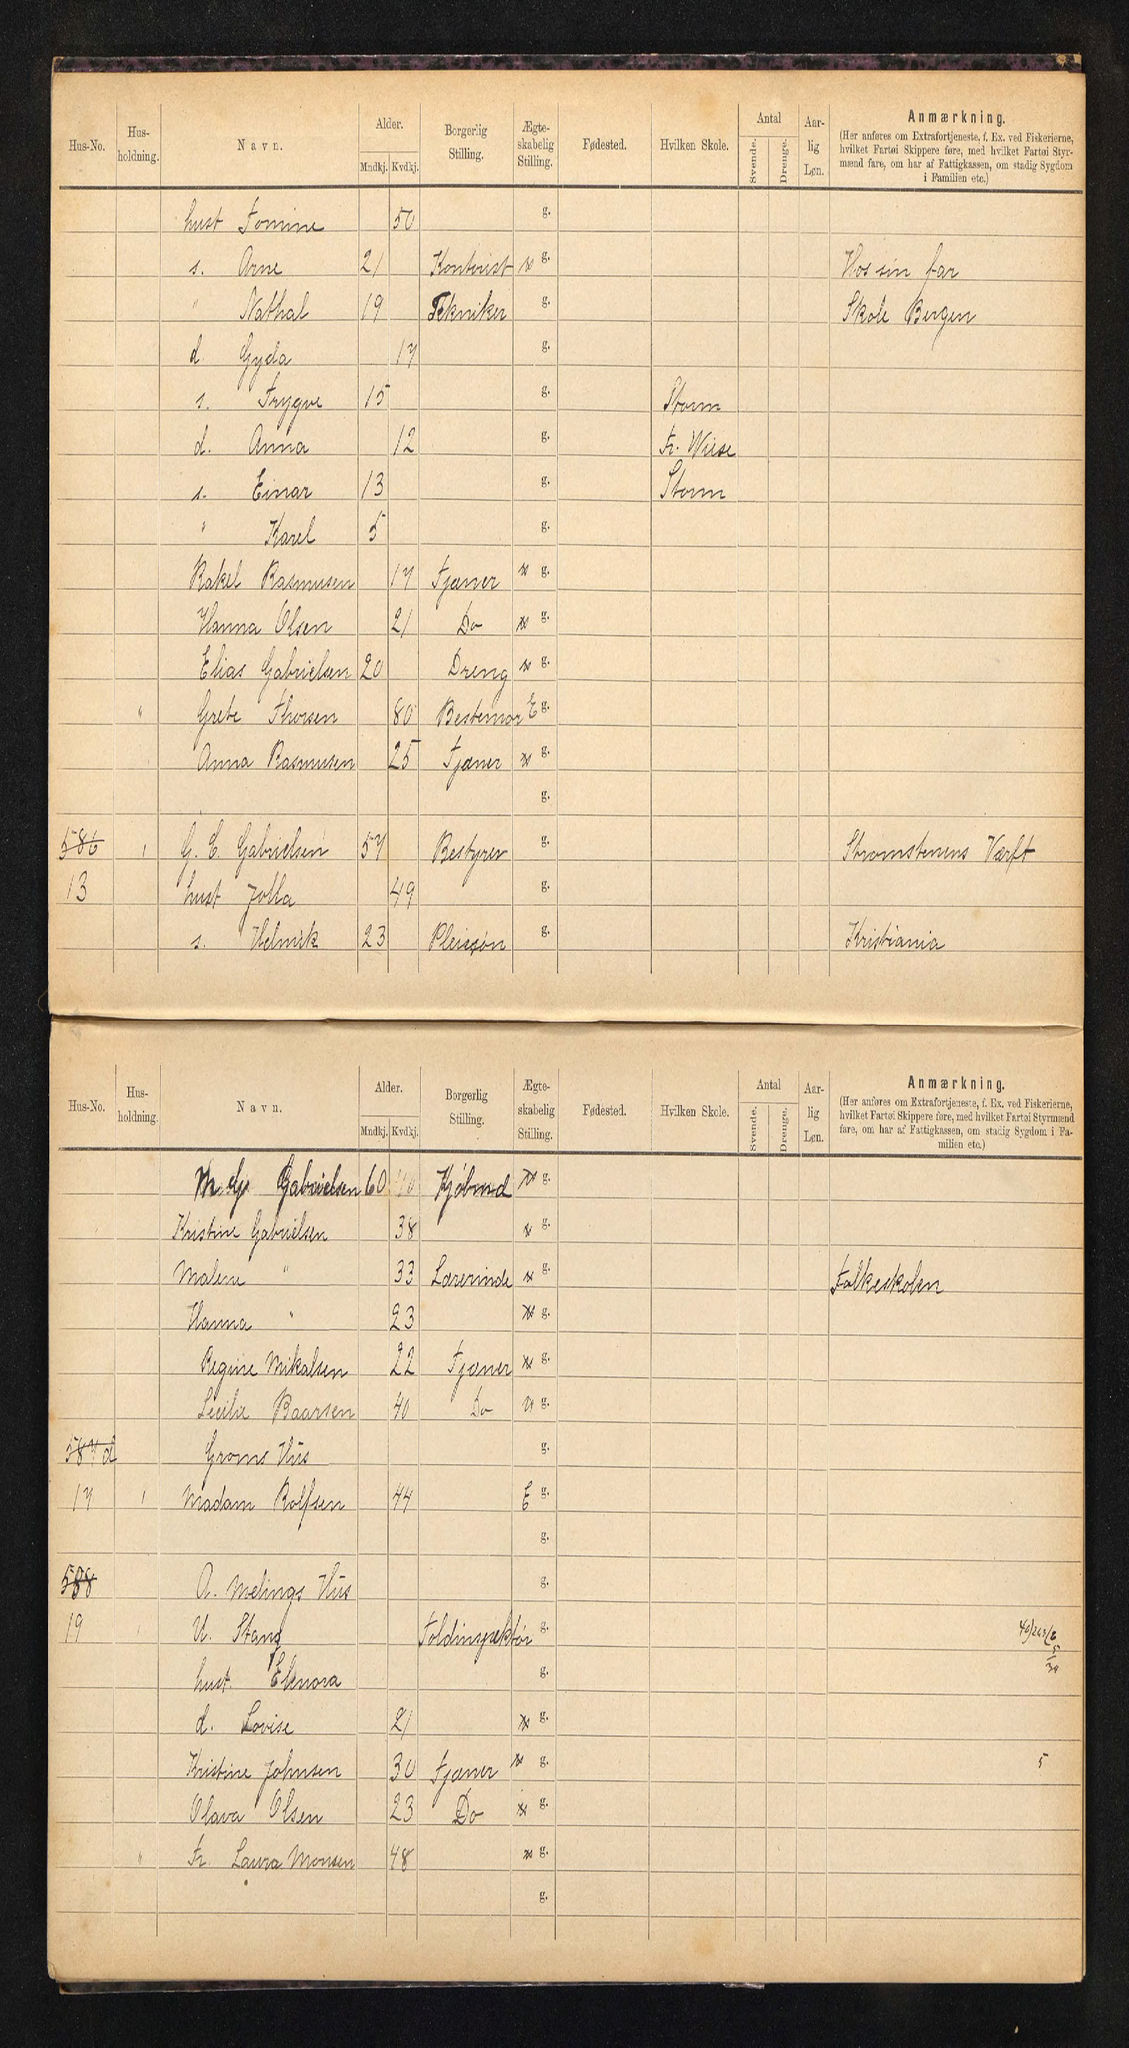 Hus-No. Hus-holdning. Navn. Alder. Mndkj. Kvdkj. Borgerlig Stilling. Ægte-skabelig Stilling. Fødested. Hvilken Skole. Antal Svende. Drenge. Aar-lig Løn. Anmærkning.
(Her anføres om Extrafortjeneste, f. Ex. ved Fiskerierne, hvilket Fartøi Skippere føre, med hvilket Fartøi Styrmænd fare, om har af Fattigkassen, om stadig Sygdom i Familien etc.)
hust Tomine 50 g.
s. Arne 21 Kontorist x g. Hos sin far
" Nathal 19 Tekniker g. Skole Bergen
d. Gyda 17 g.
s. Trygve 15 g. Storm
d. Anna 12 g. Fr. Wiese
s. Einar 13 g. Storm
" Karel 5 g.
Rakel Rasmusen 17 Tjæner x g.
Hanna Olsen 21 Do x g.
Elias Gabrielsen 20 Dreng x g.
" Grete Thorsen 80 Bestemor E g.
Anna Rasmusen 25 Tjæner x g.
g.
586 1 G. E. Gabrielsen 57 Bestyrer g. Strømstenens Værft
13 hust Jolla 49 g.
s. Helmik 23 Pleissøn g. Kristiania
Hus-No. Hus-holdning. Navn. Alder. Mndkj. Kvdkj. Borgerlig Stilling. Ægte-skabelig Stilling. Fødested. Hvilken Skole. Antal Svende. Drenge. Aar-lig Løn. Anmærkning.
(Her anføres om Extrafortjeneste, f. Ex. ved Fiskerierne, hvilket Fartøi Skippere føre, med hvilket Fartøi Styrmænd fare, om har af Fattigkassen, om stadig Sygdom i Familien etc.)
Gabrielsen 60 Kjøbmd x g.
Kristine Gabrielsen 38 x g.
Malene " 33 Lærerinde x g. Folkeskolen
Hanna " 23 x g.
Regine Mikalsen 22 Tjæner x g.
Secilie Baarsen 40 Do x g.
587 d Groms Hus g.
17 1 Madam Rolfsen 44 E g.
g.
588 A. Melings Hus g.
19 Stang Toldinspektør g.
hust. Elenora g.
d. Lovise 21 x g.
Kristine Johnsen 30 Tjæner x g. 5
Olava Olsen 23 Do x g.
" Fr. Laura Monsen 48 x g.
g.